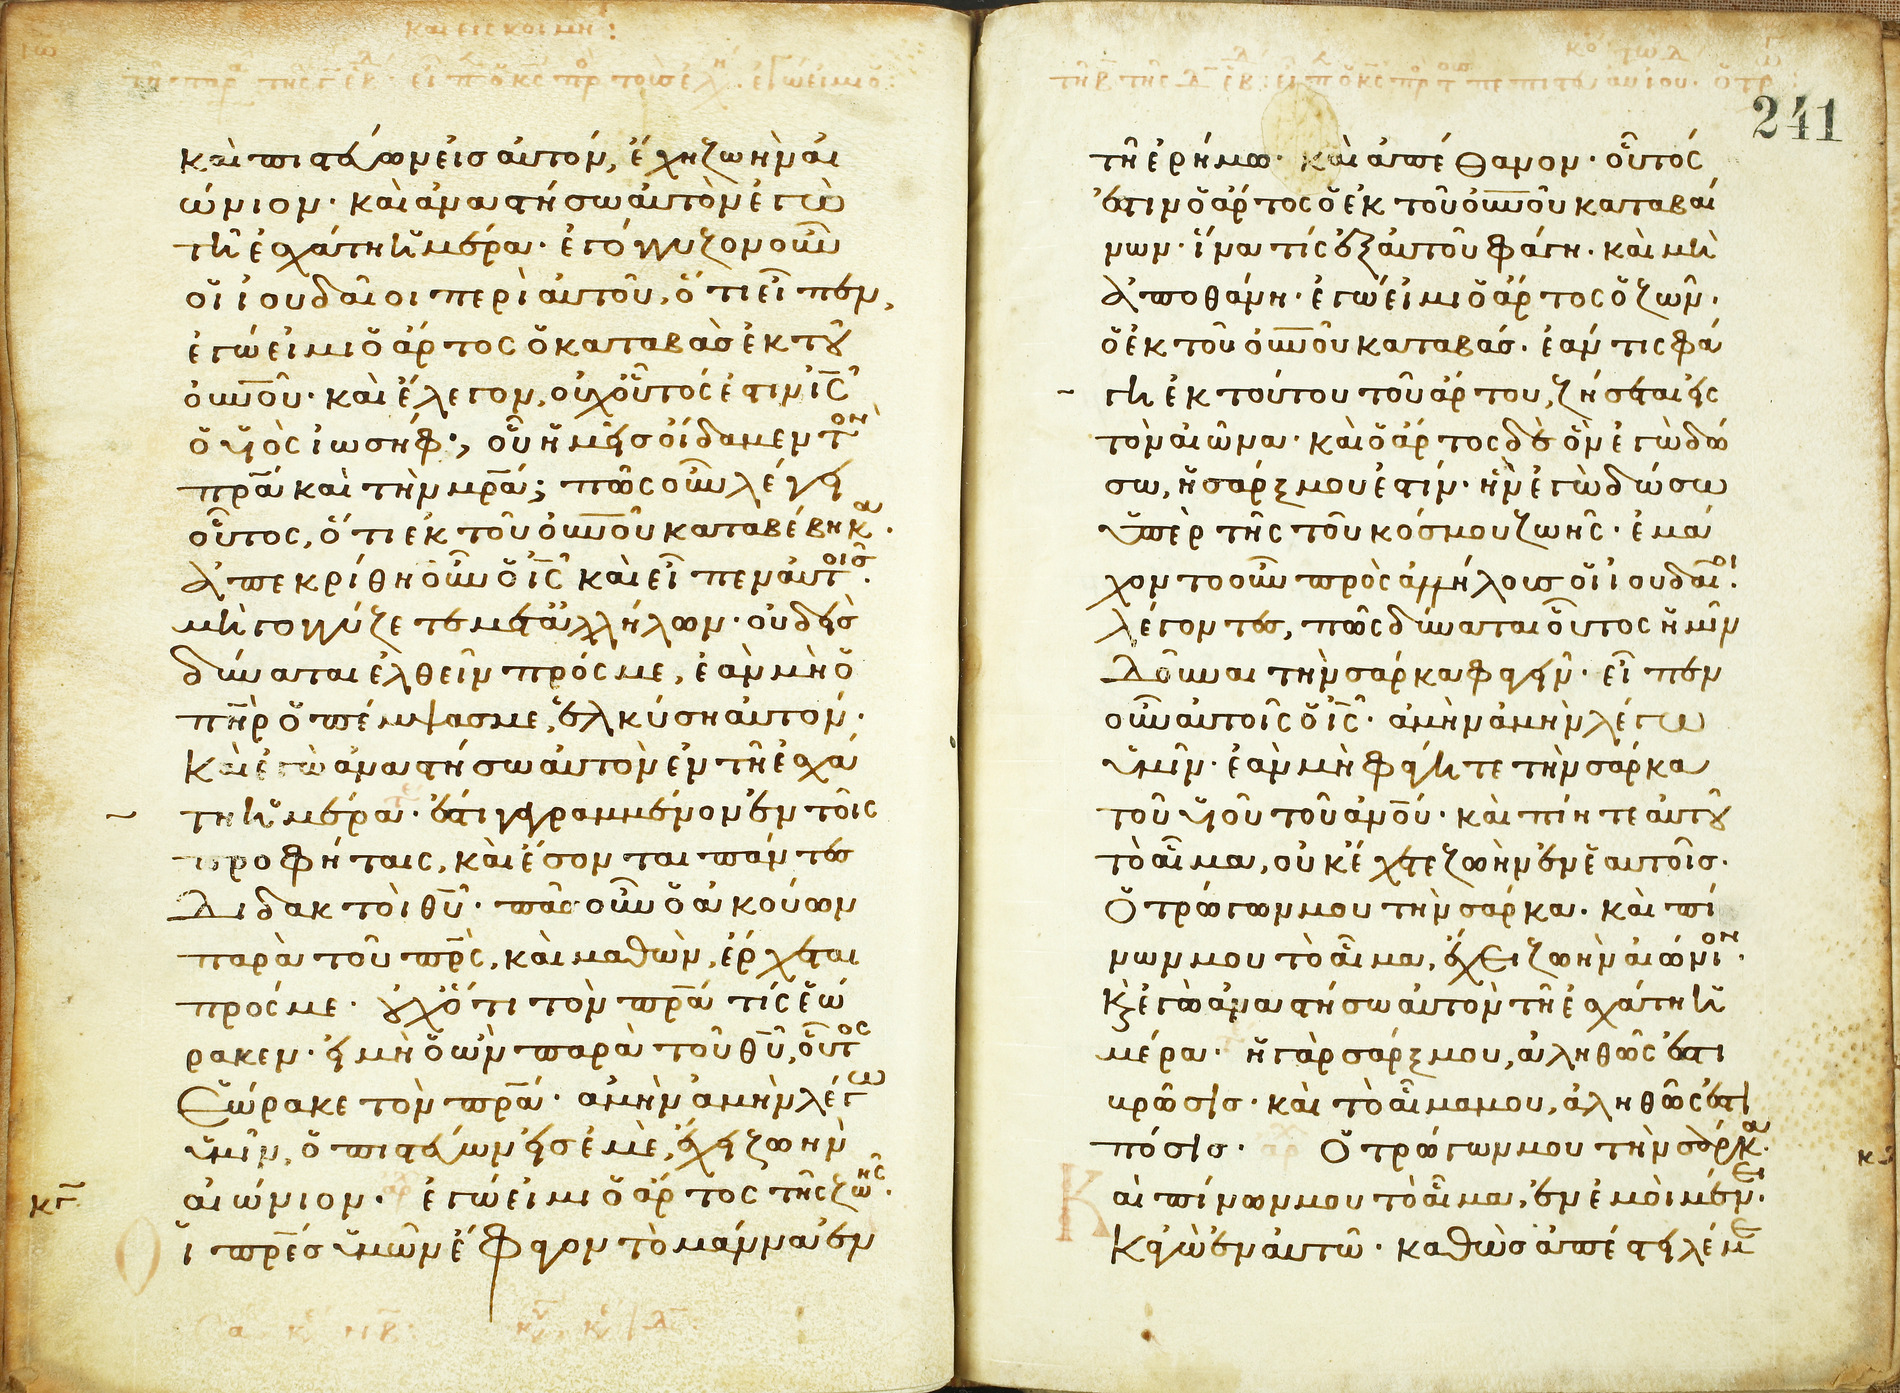 και εις κοιμη:
καὶ πιστεύων εἰσ αυτὸν, ἔχη ζωὴν αι
ώνιον· καὶ ἀναστήσω αυτὸν ἐγὼ
τῆ ἐσχάτη ἡμέρα· ἐγόγγυζον οὖν
οἱ ἰουδαῖοι περὶ αυτοῦ, ὅτι εἶπεν,
ἐγώ εἰμι ὁ ἄρτος ὁ καταβὰσ ἐκ του
ὀυνοῦ· καὶ ἔλεγον, οὐχ οὗτός ἐστιν ἰς
ὁ υἱὸς ἰωσήφ·, οὗ ἡμεῖσ οἴδαμεν τον
πρα καὶ τὴν μρα; πῶς οὖν λέγει
οὗτος, ὅτι ἐκ τοῦ ὀυνοῦ καταβέβηκα·
Ἀπεκρίθη οὖν ὁ ἰς καὶ εἶπεν αὐτοισ·
μὴ γογγύζετε μετ αλλήλων· οὐδεὶσ
δύναται ἐλθεῖν πρός με, ἐὰν μὴ ὁ
πηρ ὁ πέμψασ με, ἑλκύση αυτόν·
Καὶ ἐγὼ ἀναστήσω αυτὸν ἐν τῆ ἐσχά
τη ἡμέρα· ἔστι γεγραμμένον ἐν τοῖς
προφήταις, καὶ ἔσονται πάντεσ
Διδακτοὶ θυ· πᾶσ οὖν ὁ ἀκούων
παρὰ τοῦ πρς, καὶ μαθὼν, ἔρχεται
πρός με· ουχ ὅτι τὸν πρα τίς ἑώ
ρακεν· εἰ μὴ ὁ ὢν παρὰ τοῦ θυ, οὗτος
Ἑώρακε τὸν πρα· ἀμὴν ἀμὴν λέγω
ὑμῖν, ὁ πιστεύων εἰσ ἐμὲ, ἔχει ζωὴν
αἰώνιον· ἐγώ εἰμι ὁ ἄρτος τῆς ζωῆς·
κγ
Οἱ πρεσ ὑμῶν ἔφαγον τὸ μάννα ἐν
241
τῆ ἐρήμω· καὶ ἀπέθανον· οὗτός
ἐστιν ὁ ἄρτος ὁ ἐκ τοῦ ὀυνοῦ καταβαί
νων· ἵνα τίς ἐξ αυτοῦ φάγη· καὶ μὴ
Ἀποθάνη· ἐγώ εἰμι ὁ ἄρτος ὁ ζῶν·
ὁ ἐκ τοῦ ὀυνοῦ καταβάσ· ἐάν τις φά
γη ἐκ τούτου τοῦ ἄρτου, ζήσεται εἰς
τὸν αἰῶνα· καὶ ὁ ἄρτος δὲ ὃν ἐγὼ δώ
σω, ἡ σάρξ μου ἐστίν· ἣν ἐγὼ δώσω
ὑπὲρ τῆς τοῦ κόσμου ζωῆς· ἐμά
χοντο οὖν πρὸς ἀλλήλουσ οἱ ἰουδαῖοι·
λέγοντεσ, πῶς δύναται οὗτος ἡμῖν
Δοῦναι τὴν σάρκα φαγεῖν· εἶπεν
οὖν αυτοῖς ὁ ἰς· ἀμὴν ἀμὴν λέγω
ὑμῖν· ἐὰν μὴ φάγητε τὴν σάρκα
τοῦ υἱοῦ τοῦ ἀνου· καὶ πίητε αὐτου
τὸ αἷμα, οὐκ ἔχετε ζωὴν ἐν ἑαυτοῖσ·
Ὁ τρώγων μου τὴν σάρκα· καὶ πί
νων μου τὸ αἷμα, ἔχει ζωὴν αἰώνιον·
Κ ἐγὼ ἀναστήσω αυτὸν τῆ ἐσχάτη ἡ
μέρα· ἡ γὰρ σάρξ μου, ἀληθῶς ἐστι
βρῶσισ· καὶ τὸ αἷμα μου, ἀληθῶς ἐστι
πόσισ· Ὁ τρώγων μου τὴν σάρκα·
Καὶ πίνων μου τὸ αἷμα, ἐν ἐμοὶ μένει·
Κἀγὼ ἐν αυτῶ· καθὼσ ἀπέστειλέ με